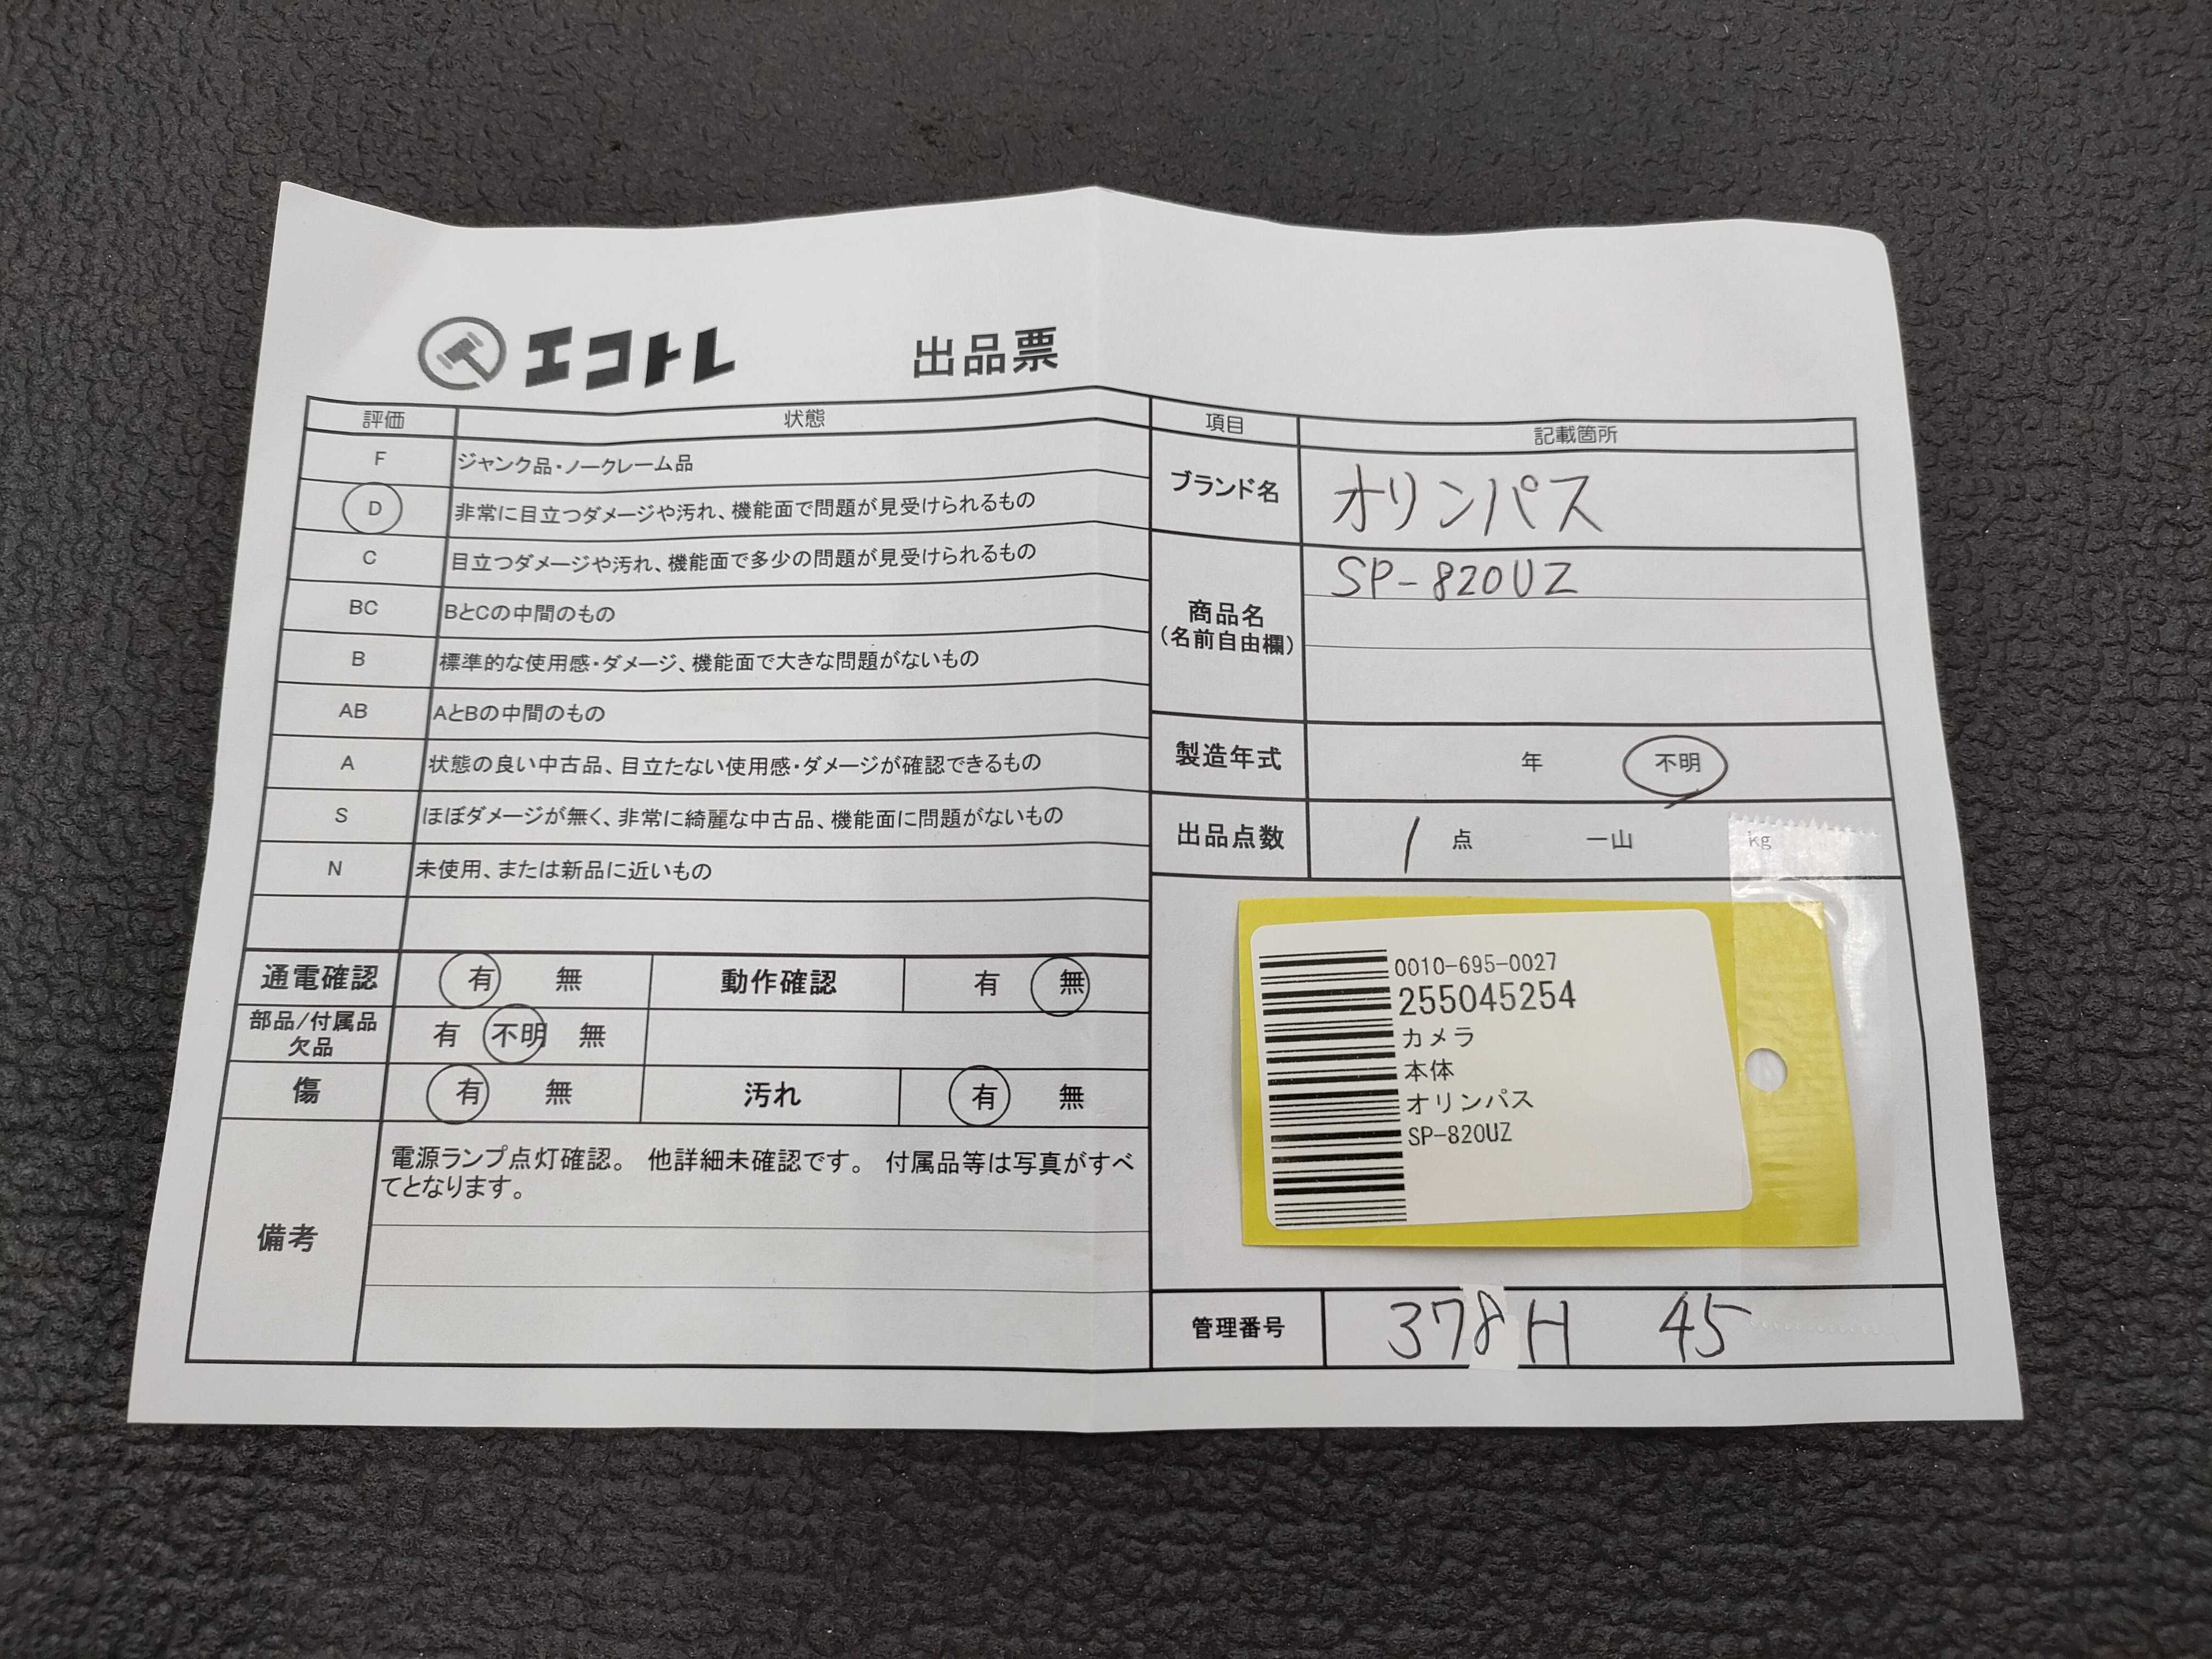 エコトレ 出品票
評価 状態
F ジャンク品・ノークレーム品
D 非常に目立つダメージや汚れ、機能面で問題が見受けられるもの
C 目立つダメージや汚れ、機能面で多少の問題が見受けられるもの
BC BとCの中間のもの
B 標準的な使用感・ダメージ、機能面で大きな問題がないもの
AB AとBの中間のもの
A 状態の良い中古品、目立たない使用感・ダメージが確認できるもの
S ほぼダメージが無く、非常に綺麗な中古品、機能面に問題がないもの
N 未使用、または新品に近いもの
通電確認 有 無 動作確認 有 無
部品/付属品
欠品
有 不明 無
傷 有 無 汚れ 有 無
備考
電源ランプ点灯確認。 他詳細未確認です。 付属品等は写真がすべ
てとなります。
項目 記載箇所
ブランド名 オリンパス
商品名
(名前自由欄)
SP-820UZ
製造年式 年 不明
出品点数 1 点 一山 kg
0010-695-0027
255045254
カメラ
本体
オリンパス
SP-820UZ
管理番号 378H 45